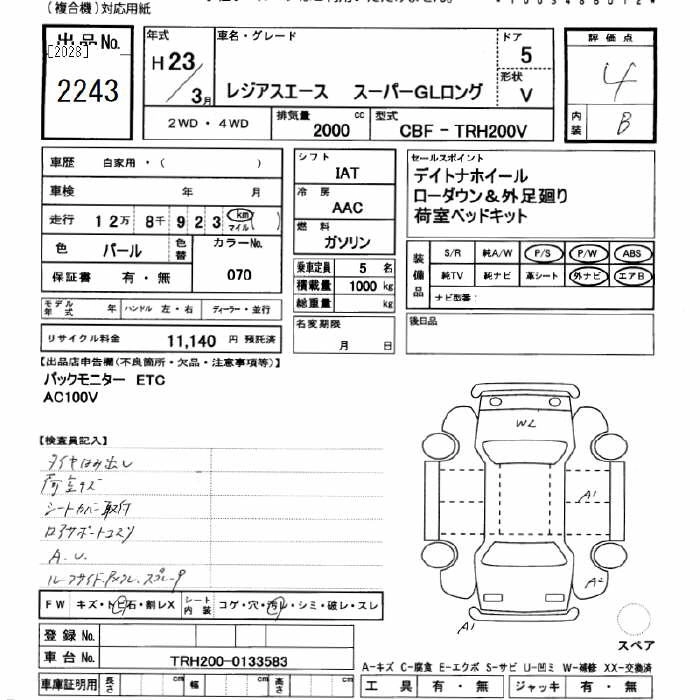 (複合機)対応用紙
出品No.
[2028]
2243
年式
H 23
3月
車名・グレード
レジアスエース スーパーGLロング
ドア
5
形状
V
評価点
4
内装
B
2WD・4WD
排気量
2000 cc
型式
CBF－TRH200V
車歴 自家用・( )
車検 年 月
走行 12万 8千 9 2 3 km マイル ( )
色 パール 色替
カラーNo.
070
保証書 有・無
シフト
IAT
冷房
AAC
燃料
ガソリン
乗車定員 5 名
積載量 1000 kg
総重量 kg
セールスポイント
デイトナホイール
ローダウン＆外足廻り
荷室ベッドキット
装備品
S/R 純A/W P/S P/W ABS
純TV 純ナビ 革シート 外ナビ エアB
ナビ型番:
モデル年式 年 ハンドル 左・右 ディーラー・並行
リサイクル料金 11,140 円 預託済
名変期限
月 日
後日品
【出品店申告欄(不良箇所・欠品・注意事項等)】
バックモニター ETC
AC100V
【検査員記入】
タイヤはみ出し
荷室キズ
シートカバー取付
A.U.
W2
A1
A2
A1
FW キズ・トビ石・割レX シート内装 コゲ・穴・汚レ・シミ・破レ・スレ
登録No.
車台No. TRH200-0133583
スペア
A-キズ C-腐食 E-エクボ S-サビ U-凹ミ W-補修 XX-交換済
車庫証明用 長さ cm 幅 cm 高さ cm
工具 有・無 ジャッキ 有・無